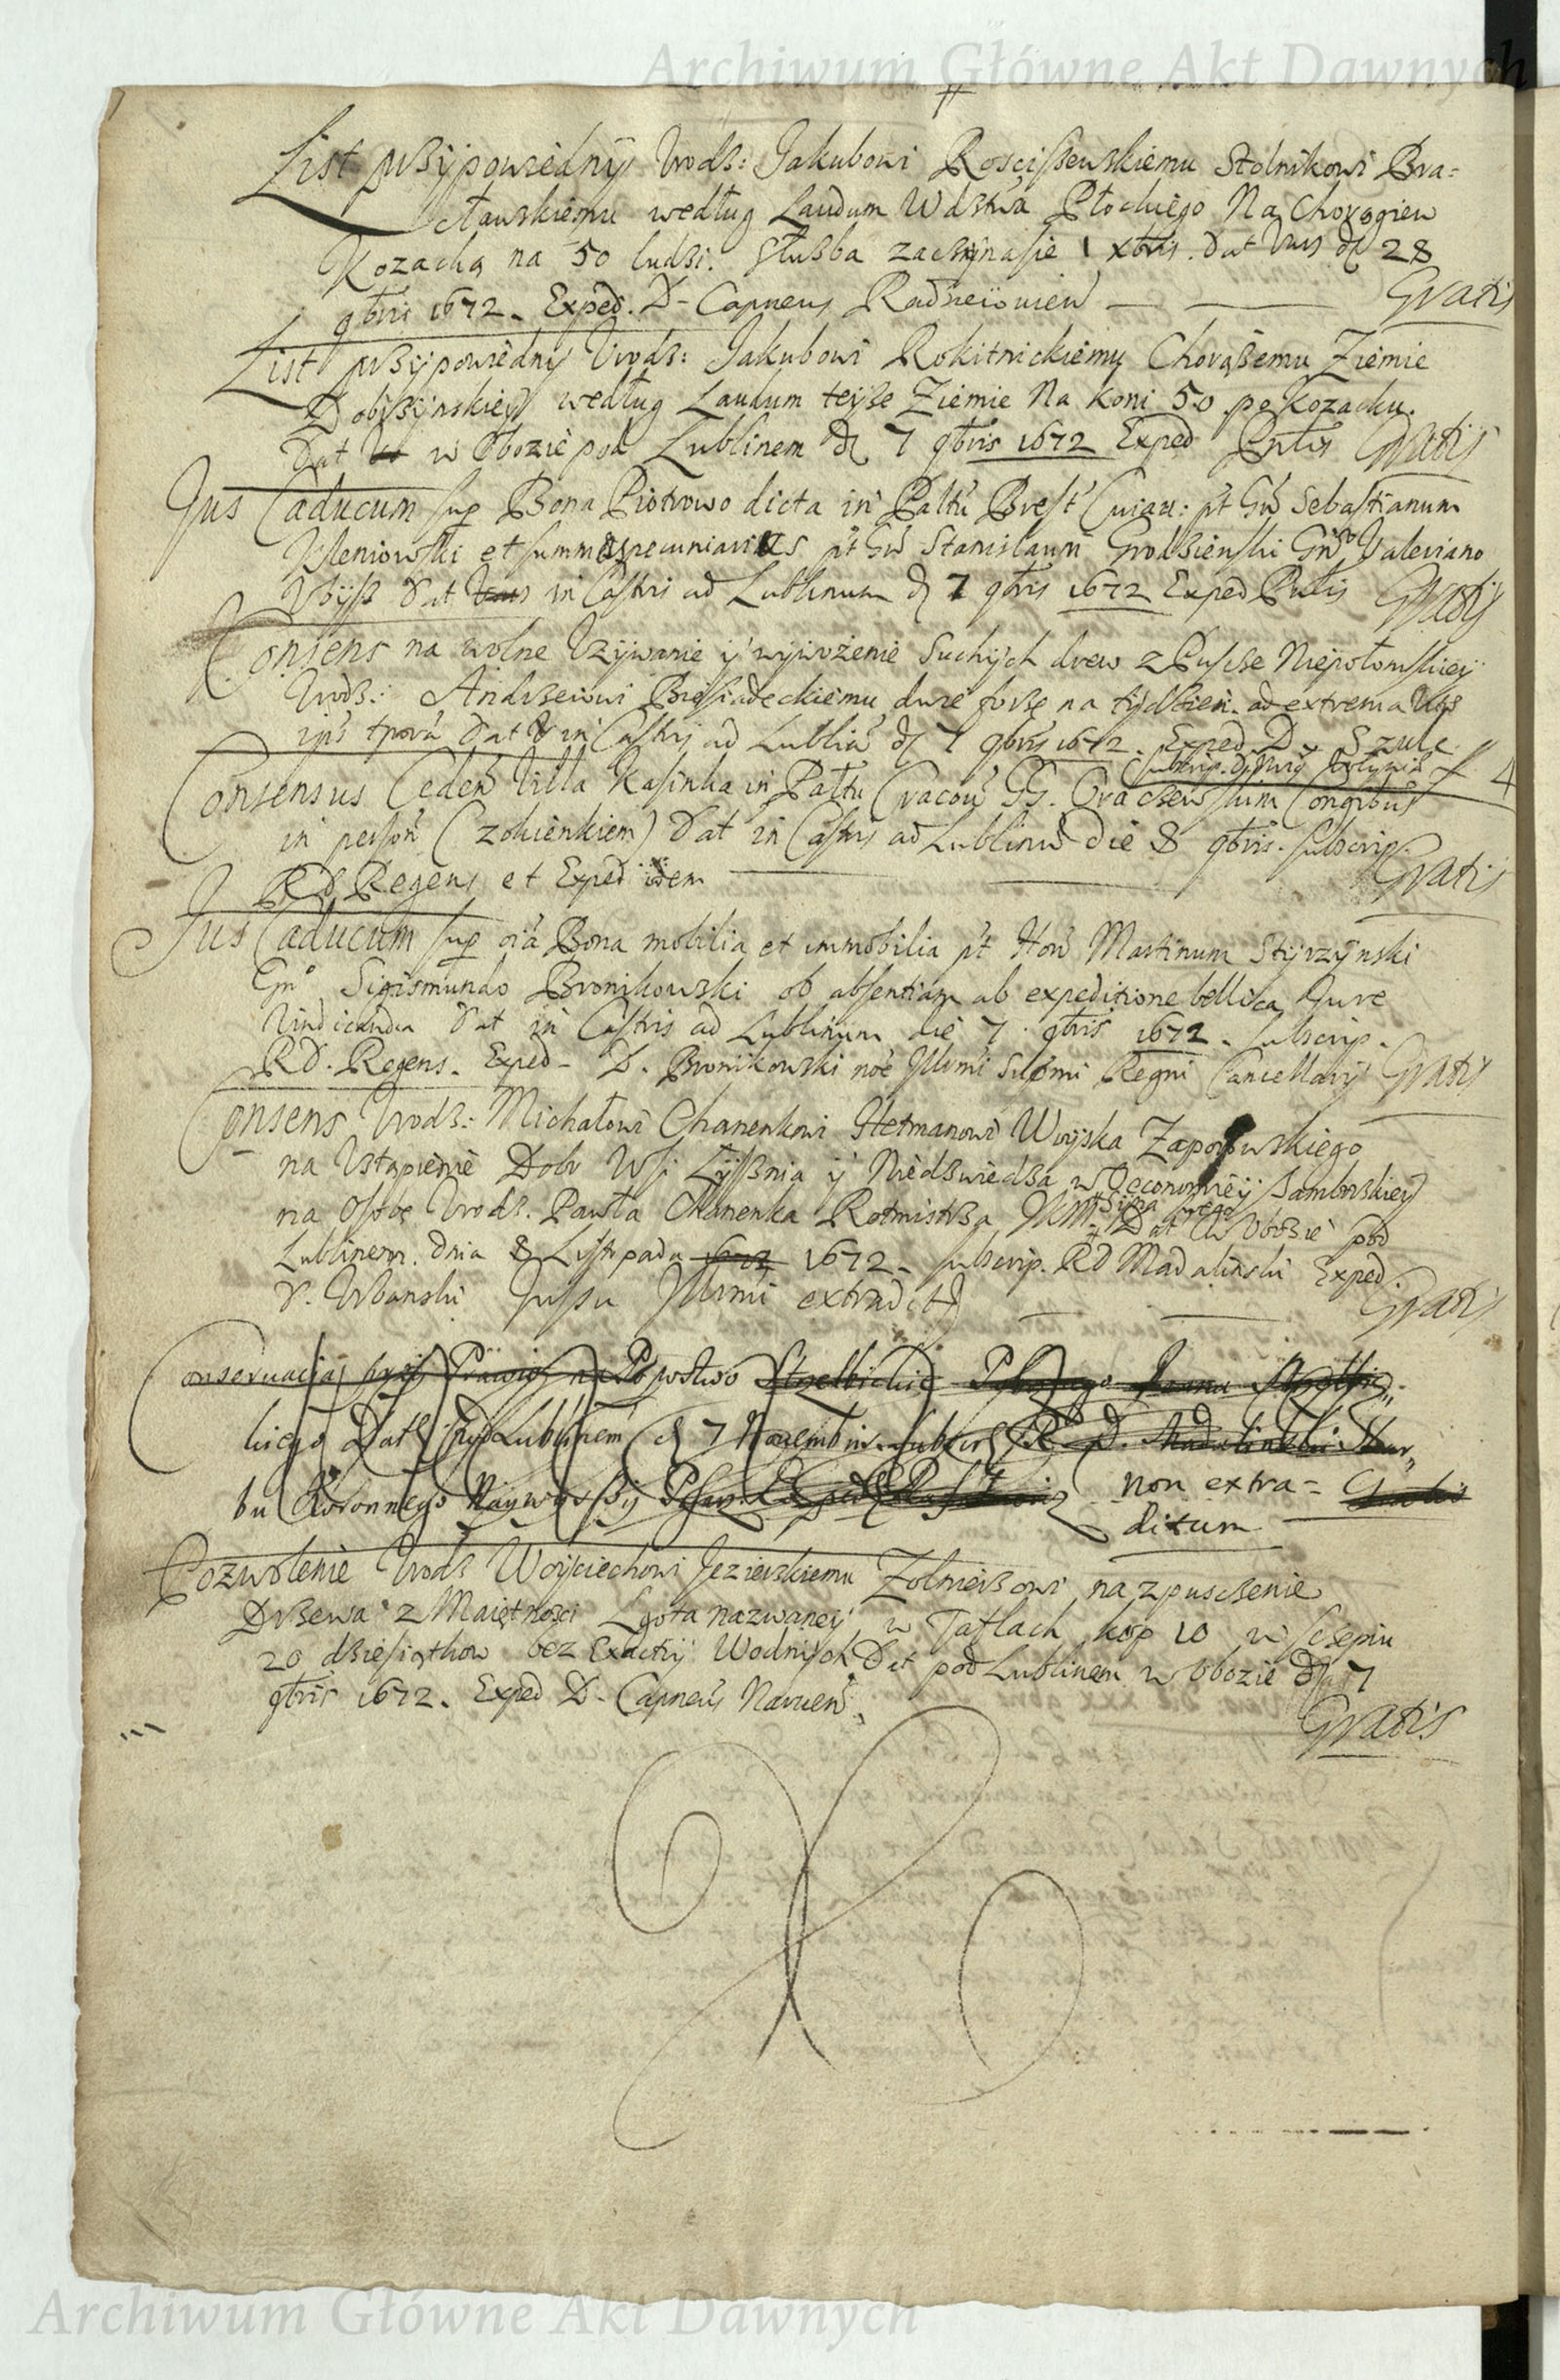 Archiwum Główne Akt Dawnych
List przÿpowiednÿ Urodz: Jakubowi Roscissewskiemu Stolnikowi Bra=
cławskiemu według Laudum Wdztwa Płockiego Na Chorągiew
Kozacką na 50 ludzi. Służba zaczÿnasie 1 xbris. Dat d 28
9bris 1672. Exped. D. Capneus Radneiowien Gratis
List przÿpowiednÿ Urodz: Jakubowi Rokitnickiemu Chorążemu Ziemie
Dobrzÿnskieÿ według Laudum teÿze Ziemie Na koni 50 po kozacku.
Dat w Obozie pod Lublinem d 7 9bris 1672 Exped Gratis
Jus Caducum sup Bona Piotrowo dicta in Paltu Brest Cuiau: pt Gn Sebastianum
et summas pecuniarias pt Gn Stanislaum Grodzienski Gnso Valeriano
Dat in Castris ad Lublinum d 7 9bris 1672 Exped Gratis
Consens na wolne Uzÿwanie ÿ wÿwożenie Suchÿch drew z Puscze Niepołomskieÿ
Urodz: Andrzeiowi Biesiadeckiemu dwie forze na tÿdzien. ad extrema
Dat in Castris ad Lublin d 7 9bris 1672. Exped. D. Szulc
Consensus Ceden Villa Kasinka in Paltu Cracou GG. Conqibus 4
in person (z okienkiem) Dat in Castris ad Lublinu die 8 9bris. subscrip.
RD Regens et Exped idem Gratis
Jus Caducum sup oia Bona mobilia et immobilia pt Hon Martinum Stÿrzÿnski
Gno Sigismundo Bronikowski ob absentiam ab expeditione bellica Jure
Vindicanda Dat in Castris ad Lublinum die 7. 9bris 1672. subscrip.
RD. Regens. Exped. D. Bronikowski noe Illmi Supmi Regni Cancellarÿ Gratis
Consens Urodz: Michałowi Chanenkowi Hetmanowi Woÿska Zaporowskiego
na Ustąpienie Dobr Wsi Łÿsznia ÿ Niedzwiedza w Oeconomieÿ Samborskieÿ
na Osobę Urodz. Pawła Chanenka Rotmistrza Dat w Obozie pod
Lublinem. dnia 8 Listopada 1672. subscrip. RD Madalinski Exped.
D. Urbanski Jussu Illmi extradit Gratis
Conseruacia przÿ Prawie na Popowstwo Strzelbickie Jwana Strzelbic=
kiego Dat pod Lublinem d 7 Nouembris. subscr. R. D. Madalinski Skar=
bu Koronnego Naywÿssÿ Pisarz Exped non extra= Gratis
ditum
Pozwolenie Urodz Woÿciechowi Jezierskiemu Zołnierzowi na zpuszczenie
Drzewa z Maiętnosci Lgota nazwaneÿ w Taflach kop 10 w
20 dziesiątkow bez Exactÿ Wodnÿch Dat pod Lublinem w Obozie d 7
9bris 1672. Exped D. Capneus Gratis
Archiwum Główne Akt Dawnych